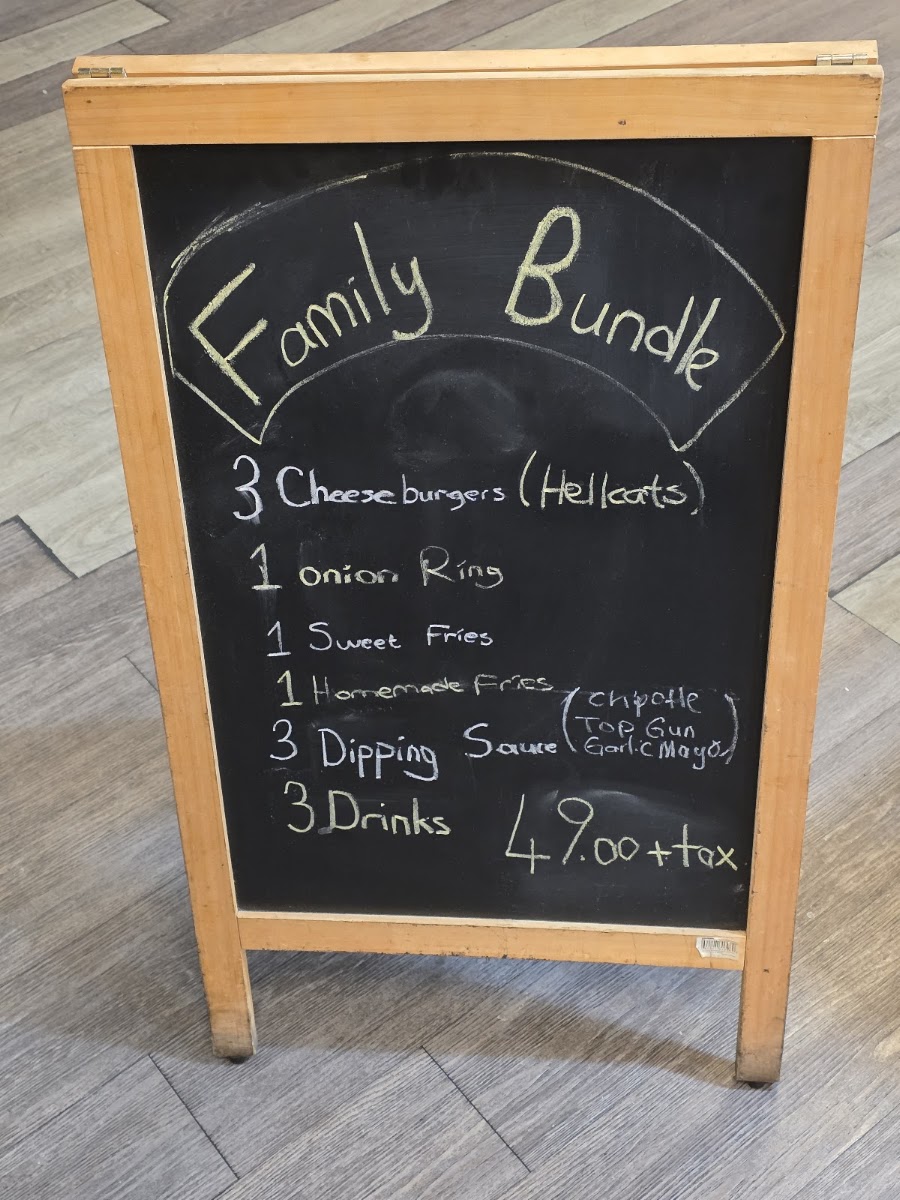 Family Bundle
3 Cheeseburgers (Hellcats)
1 onion Ring
1 Sweet Fries
1 Homemade Fries
3 Dipping Sauce (Chipotle
Top Gun
Garlic Mayo)
3 Drinks
49.00 + tax